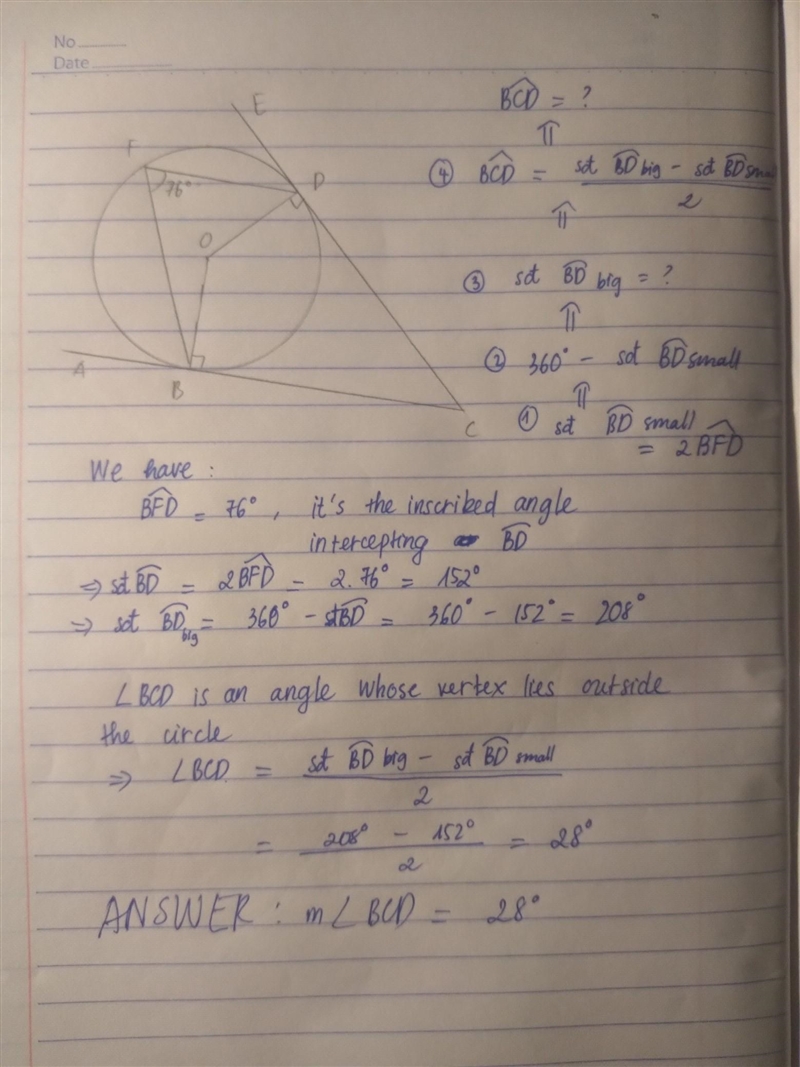 No
Date
E
F
76°
D
O
A
B
C
BCD = ?
⇑
④ BCD = (sđ BD big − sđ BD small) / 2
⇑
③ sđ BD big = ?
⇑
② 360° − sđ BD small
⇑
① sđ BD small
= 2BFD
We have :
BFD = 76° , it's the inscribed angle
intercepting BD
⇒ sđ BD = 2BFD = 2.76° = 152°
⇒ sđ BD big = 360° − sđ BD = 360° − 152° = 208°
∠BCD is an angle whose vertex lies outside
the circle
⇒ ∠BCD = (sđ BD big − sđ BD small) / 2
= (208° − 152°) / 2 = 28°
ANSWER : m∠BCD = 28°